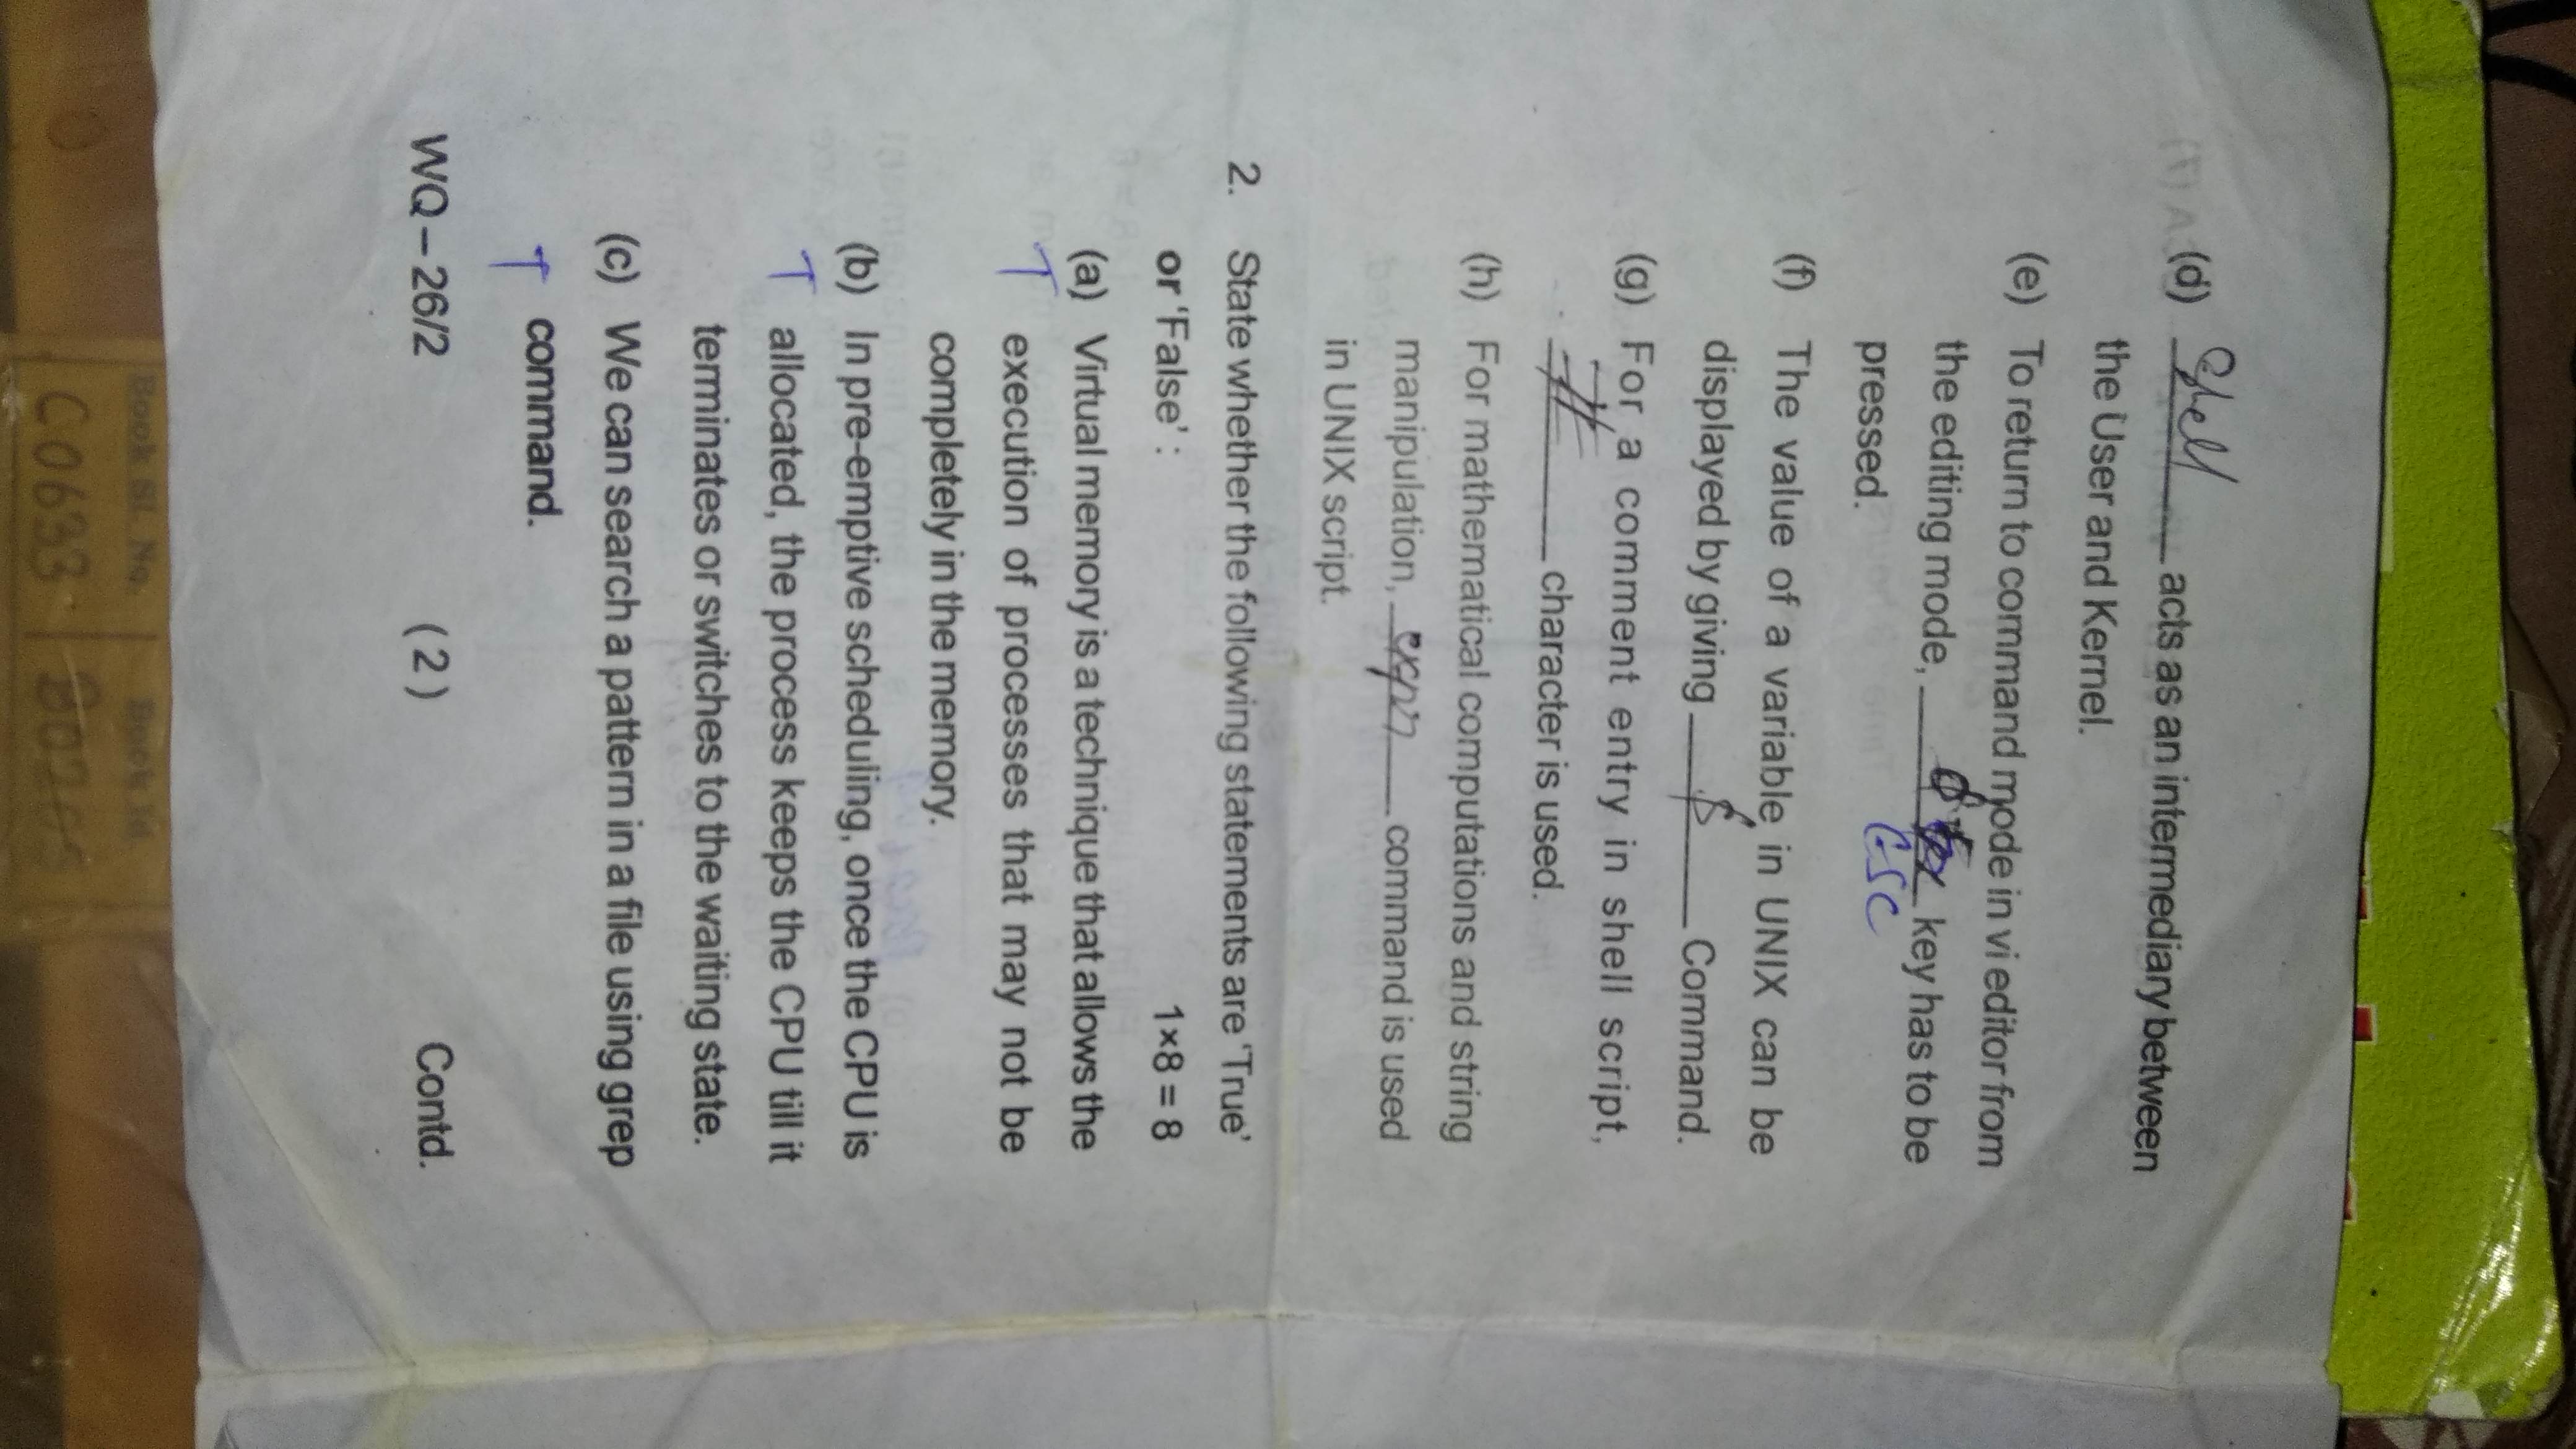 (d) Shell acts as an intermediary between
the User and Kernel.
(e) To return to command mode in vi editor from
the editing mode, key has to be
ESC
pressed.
(f) The value of a variable in UNIX can be
displayed by giving $ Command.
(g) For a comment entry in shell script,
# character is used.
(h) For mathematical computations and string
manipulation, expr command is used
in UNIX script.
2. State whether the following statements are ‘True’
or ‘False’ : 1×8 = 8
(a) Virtual memory is a technique that allows the
T execution of processes that may not be
completely in the memory.
(b) In pre-emptive scheduling, once the CPU is
T allocated, the process keeps the CPU till it
terminates or switches to the waiting state.
(c) We can search a pattern in a file using grep
T command.
WQ – 26/2 (2) Contd.
Book Sl. No. Book Id
C0633